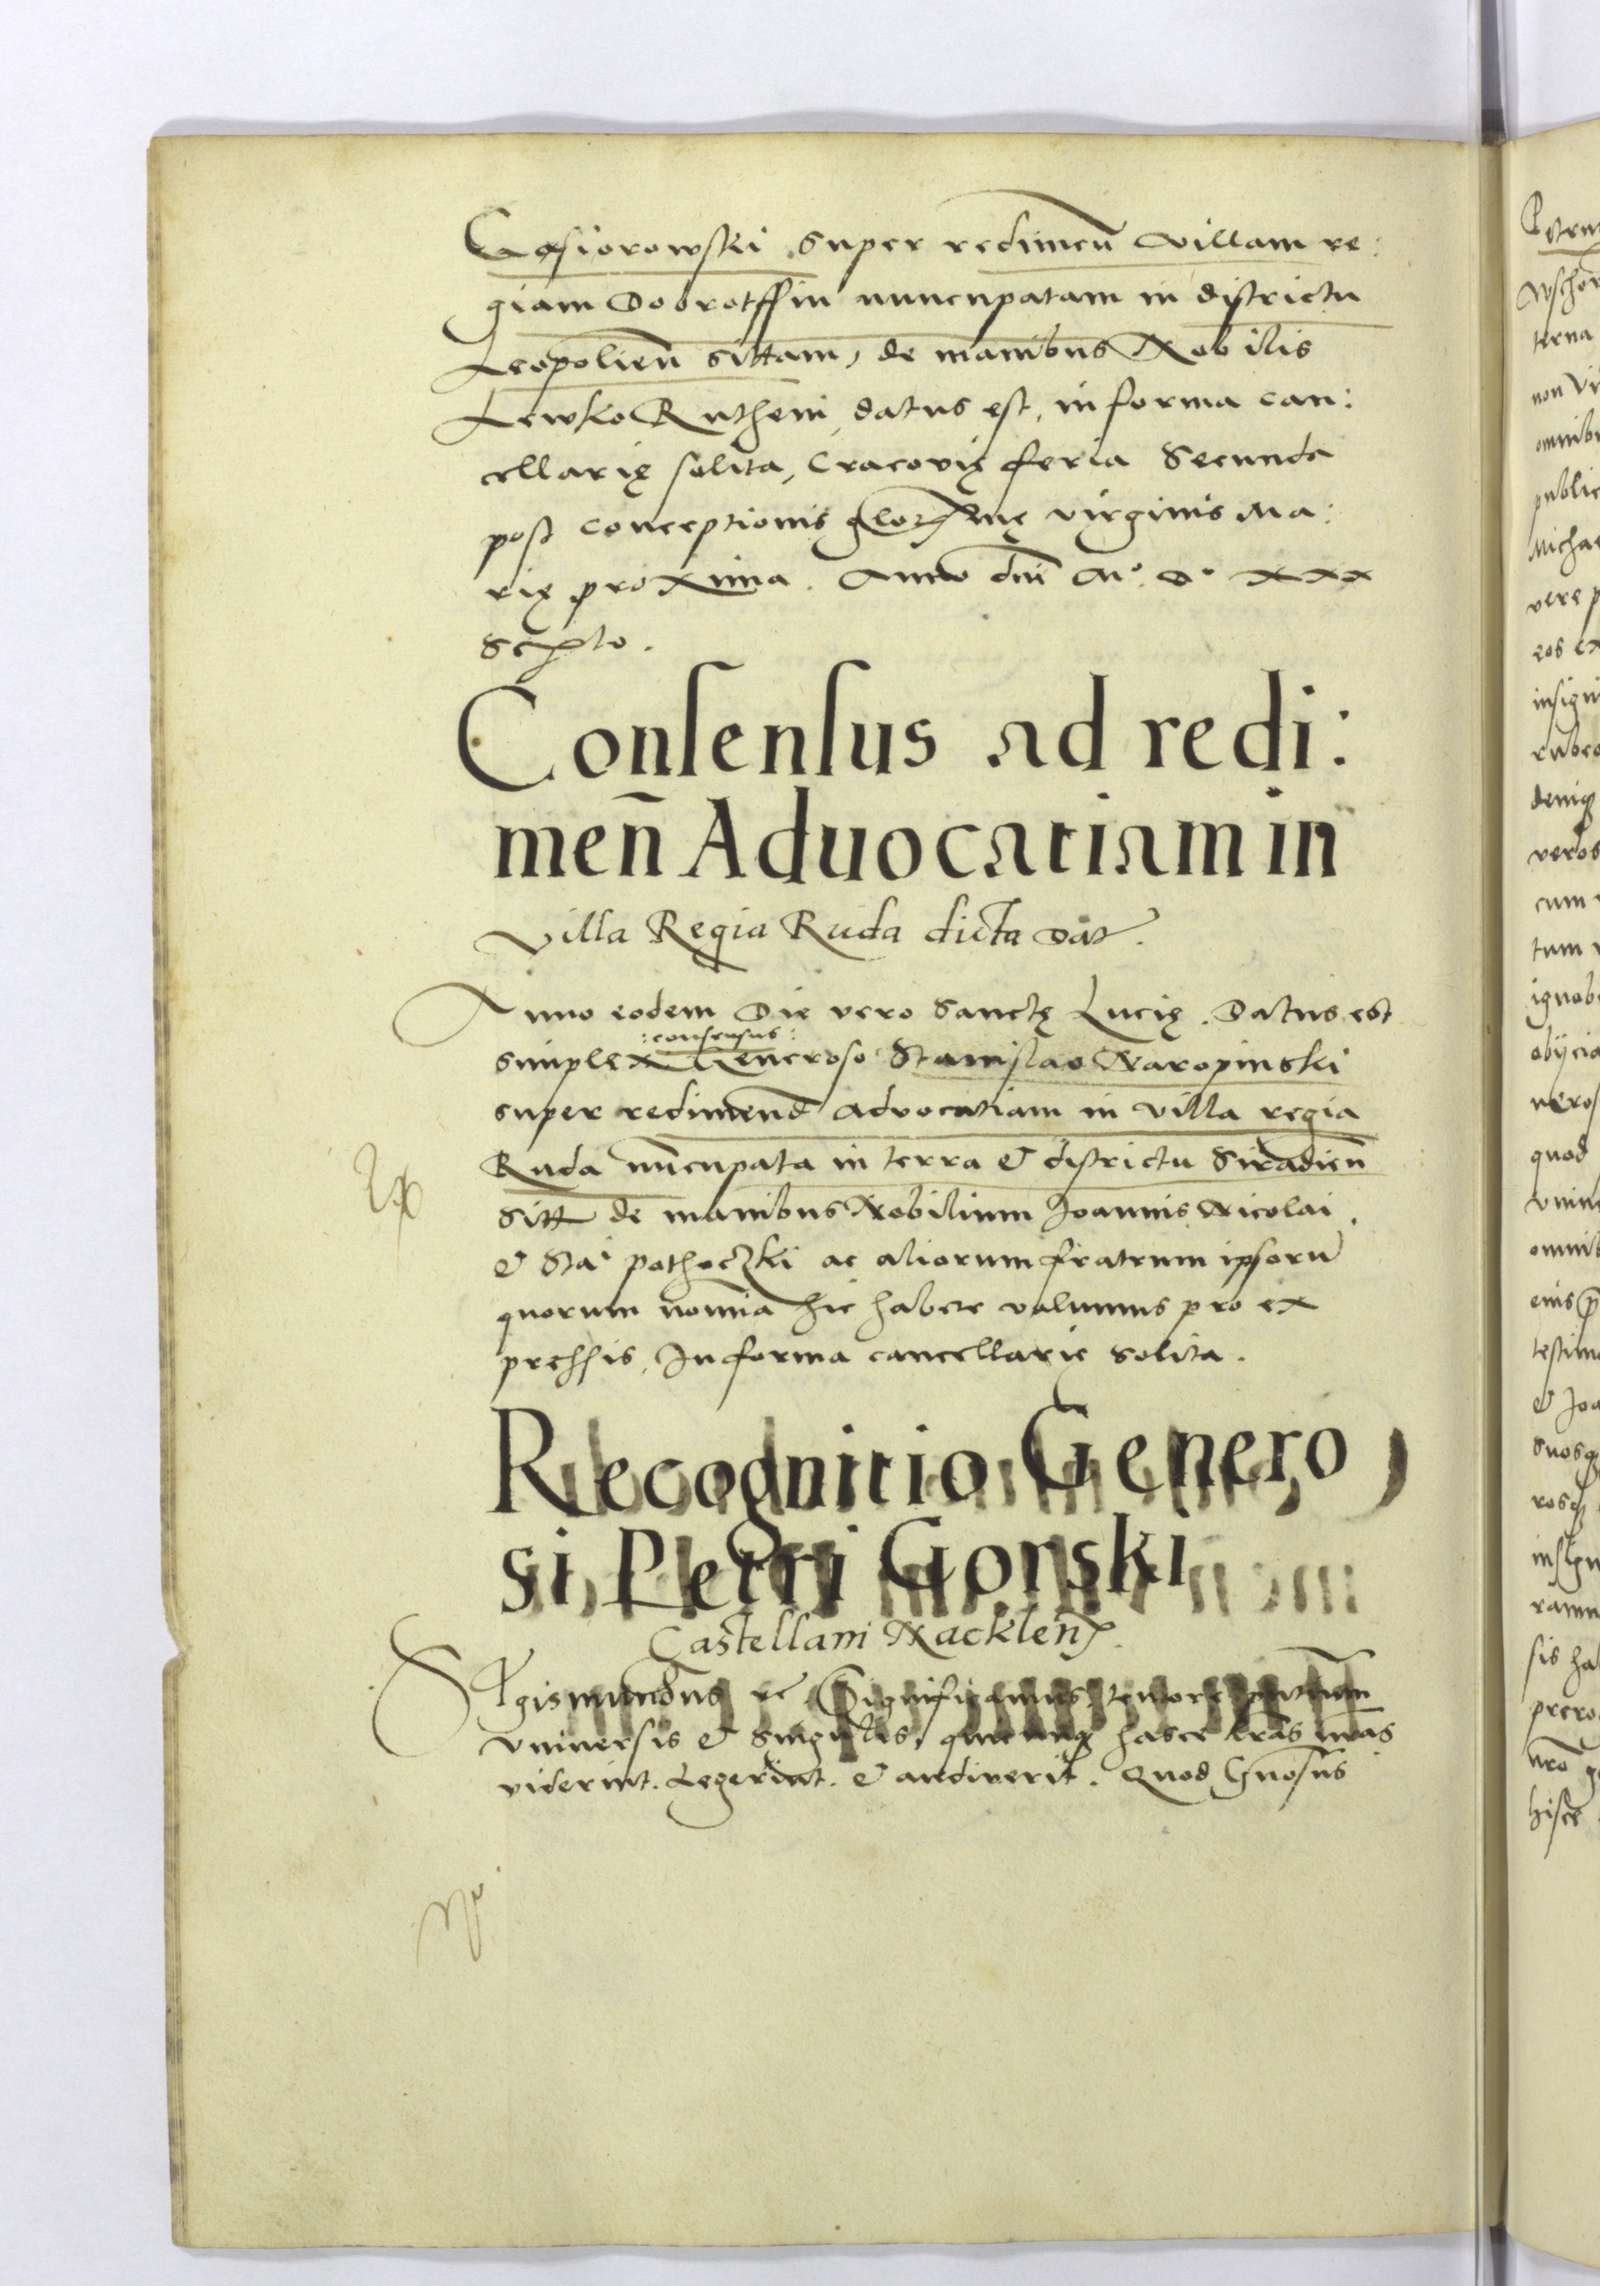 Gąsiorowski super redimen̄ villam re:
giam Dobrotffin nuncupatam in districtu
Leopolien̄ sittam, de manibus Nobilis
Lewko Rutheni datus est, in forma can:
cellarię solita, Cracovię feria Secunda
post conceptionis virginis Ma:
rię proxima. Anno dn̄i M° D° xxx
Sexto.
Consensus ad redi:
men̄ Aduocatiam in
Villa Regia Ruda dicta dat.
Anno eodem Die vero Sanctę Lucię. Datus est
:consensus:
simplex Generoso Stanislao Naropinski
super redimend advocatiam in villa regia
Ruda nūcupata in terra & districtu Siradien̄
Ex
Sitt de manibus Nobilium Joannis Nicolai
& Sta¹ pothoczki ac aliorum fratrum ipsorū
quorum nomīa hic habere volumus pro ex
pressis, In forma cancellarie solita.
Recognitio Genero
si Petri Gorski
Castellani Nacklen̄
Sigismundus rc Significamus tenore pn̄tium
Vniversis & Singulis, quicunq hasce lrās nrās
viderint. Legerint. & audiverit. Quod Gnosus